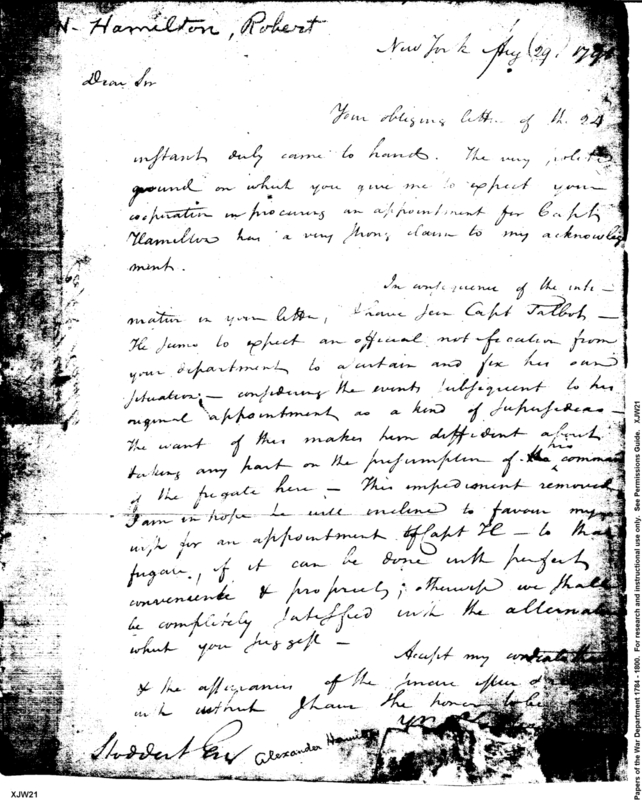 Hamilton, Robert
New York Aug (29) 179
Dear Sir
Your obliging letter of the 24
instant duly came to hand. The very polite
ground on which you give me to expect your
cooperation in procuring an appointment for Capt
Hamilton has a very strong claim to my acknowledg
ment.
In consequence of the inti-
mation in your letter, I have seen Capt Talbot -
He seems to expect an official notification from
your department to ascertain and fix his own
situation; - considering the events subsequent to his
original appointment as a kind of supersedeas -
The want of this makes him diffident about
taking any part on the presumption of the his command
of the frigate here - This impediment removed
I am in hope he will incline to favour my
wish for an appointment of Capt H - to that
frigate, if it can be done with perfect
convenience & propriety; otherwise we shall
be completely satisfied with the alternative
which you suggest -
Accept my
& the assurances of the sincere esteem
with which I have the honor to be
Stoddert Esq Alexander Hamilton
XJW21
Papers of the War Department 1784 - 1800. For research and instructional use only. See Permissions Guide. XJW21